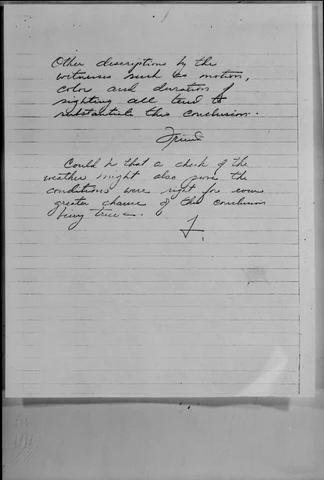 Other descriptions by the
witnesses such as motion,
color and duration of
sighting all tend to
substantiate this conclusion.
Friend
Could be that a check of the
weather might also prove the
conditions were right for even
greater chance of this conclusion
being true.
F.